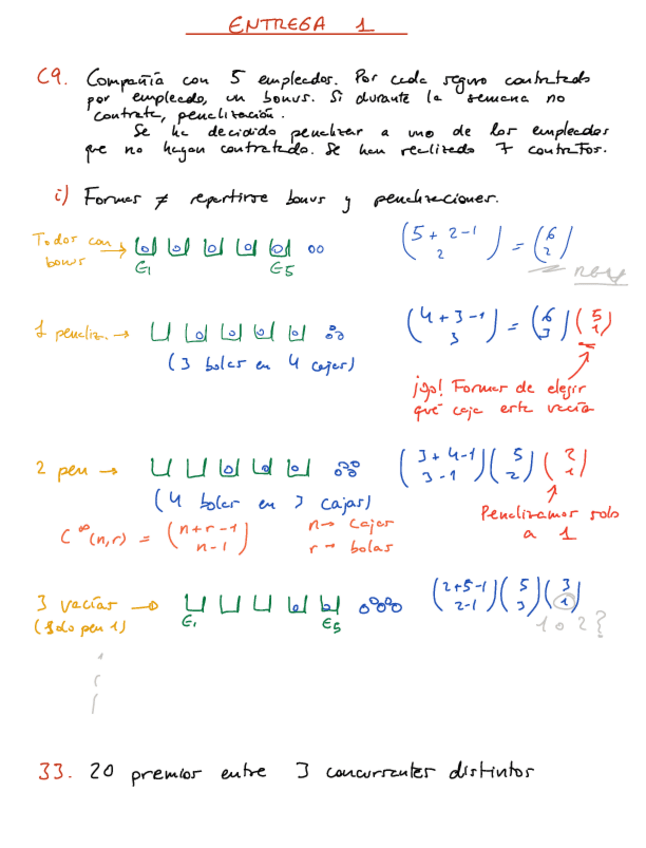 ENTREGA 1
C9. Compañía con 5 empleados. Por cada seguro contratado
por empleado, un bonus. Si durante la semana no
contrate, penalización.
Se ha decidido penalizar a uno de los empleados
que no hayan contratado. Se han realizado 7 contratos.
i) Formas ≠ repartirse bonus y penalizaciones.
Todos con → bonus
E1 E5
(5 + 2 - 1 / 2) = (6 / 2)
1 penaliz. →
(3 bolas en 4 cajas)
(4 + 3 - 1 / 3) = (6 / 3) (5 / 1)
¡ojo! Formas de elegir
qué caja esta vacía
2 pen →
(4 bolas en 3 cajas)
(3 + 4 - 1 / 3 - 1) (5 / 2) (2 / 1)
Penalizamos solo
a 1
C^∞(n,r) = (n + r - 1 / n - 1)
n → cajas
r → bolas
3 vacías →
(Solo pen 1)
E1 E5
(2 + 5 - 1 / 2 - 1) (5 / 3) (3 / 1)
1 o 2?
33. 20 premios entre 3 concursantes distintos